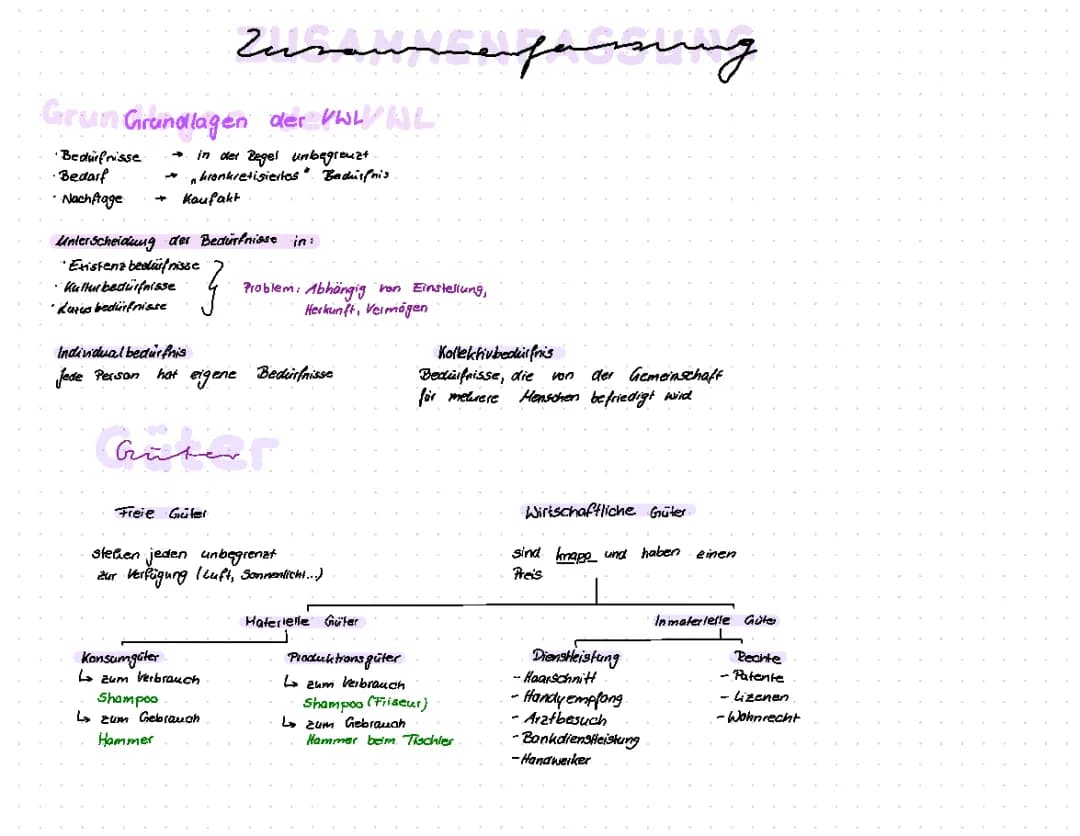 Zusammenfassung
Grundlagen der VWL
· Bedürfnisse → in der Regel unbegrenzt
· Bedarf → „konkretisiertes" Bedürfnis
· Nachfrage → Kaufakt
Unterscheidung der Bedürfnisse in:
· Existenzbedürfnisse
· Kulturbedürfnisse
· Luxusbedürfnisse
Problem: Abhängig von Einstellung,
Herkunft, Vermögen
Individualbedürfnis
Jede Person hat eigene Bedürfnisse
Kollektivbedürfnis
Bedürfnisse, die von der Gemeinschaft
für mehrere Menschen befriedigt wird
Güter
Freie Güter
stehen jeden unbegrenzt
zur Verfügung (Luft, Sonnenlicht...)
Wirtschaftliche Güter
sind knapp und haben einen
Preis
Materielle Güter
Inmaterielle Güte
Konsumgüter
↳ zum Verbrauch
Shampoo
↳ zum Gebrauch
Hammer
Produktionsgüter
↳ zum Verbrauch
Shampoo (Friseur)
↳ zum Gebrauch
Hammer beim Tischler
Dienstleistung
- Haarschnitt
- Handyempfang
- Arztbesuch
- Bankdienstleistung
- Handwerker
Rechte
- Patente
- Lizenen
- Wohnrecht